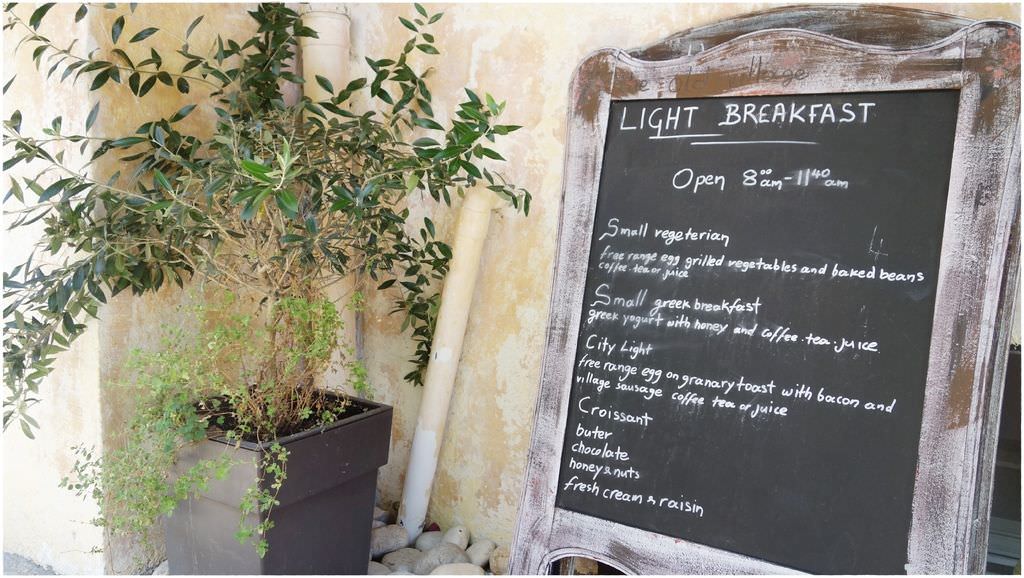 LIGHT BREAKFAST
Open 8⁰⁰am-11⁴⁰am
Small vegeterian
free range egg grilled vegetables and baked beans
coffee.tea or juice
Small greek breakfast
greek yogurt with honey and coffee.tea.juice.
City Light
free range egg on granary toast with bacon and
village sausage coffee tea or juice
Croissant
buter
chocolate
honey & nuts
fresh cream & raisin